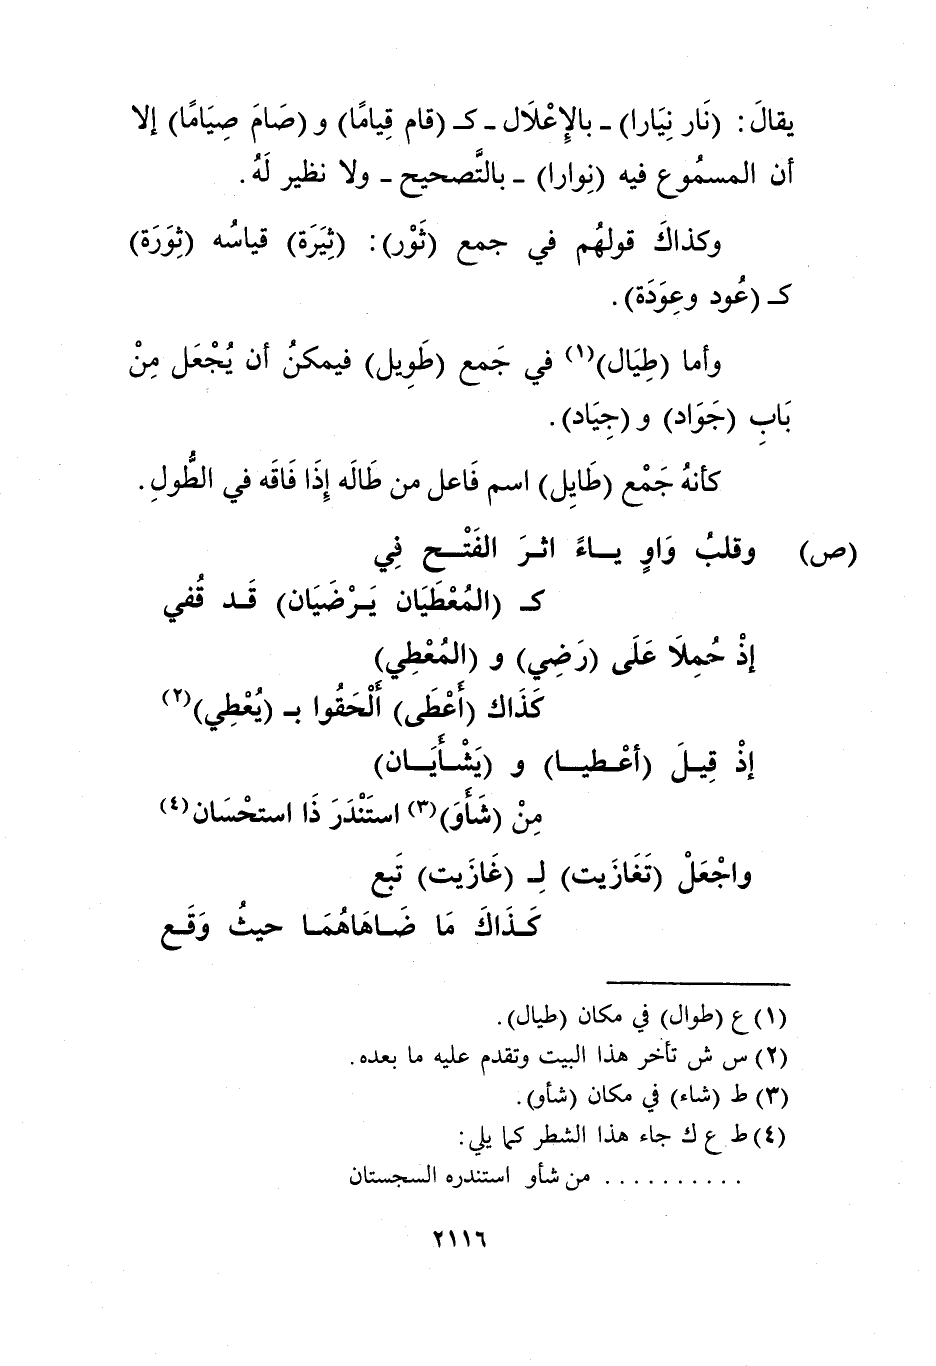 يقالَ: (نَار نِيَارا) ـ بالإِعْلَال ـ كـ (قام قِيامًا) و (صَامَ صِيَامًا) إلا
أن المسمُوع فيه (نِوارا) ـ بالتَّصحيح ـ ولا نظير لَهُ.
وكذاكَ قولهُم في جمع (ثَوْر): (ثِيَرَة) قياسُه (ثِوَرَة)
كـ (عُود وعِوَدَة).
وأما (طِيَال)(١) في جَمع (طَوِيل) فيمكنُ أن يُجْعَل مِنْ
بَابِ (جَوَاد) و (جِيَاد).
كأنهُ جَمْع (طَايِل) اسم فَاعل من طَالَه إِذَا فَاقَه في الطُّولِ.
(ص) وقلبُ وَاوٍ يــاءً اثـرَ الفَتْــح فِي
كـ (المُعْطَيَان يَـرْضَيَان) قَـد قُفي
إذْ حُمِلَا عَلَى (رَضِي) و (المُعْطِي)
كَذَاك (أَعْطَى) أَلْحَقُوا بـ (يُعْطِي)(٢)
إذْ قِيـلَ (أعْـطيـا) و (يَشْـأَيَـان)
مِنْ (شَأَوَ)(٣) استَنْدَرَ ذَا استحْسَان(٤)
واجْعَلْ (تَغَازَيت) لِـ (غَازَيت) تَبع
كَـذَاكَ مَا ضَـاهَاهُمَـا حيثُ وَقَـع
(١) ع (طوال) في مكان (طيال).
(٢) س ش تأخر هذا البيت وتقدم عليه ما بعده.
(٣) ط (شاء) في مكان (شأو).
(٤) ط ع ك جاء هذا الشطر كما يلي:
. . . . . . . . . . من شأو استندره السجستان
٢١١٦